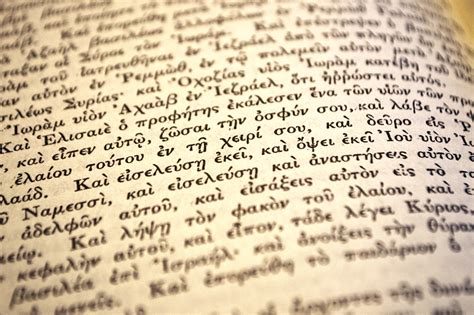 Ἀζαὴλ βασιλέως
οἱ Σύροι τὸν Ἰωράμ. Καὶ
τοῦ ἰατρευθῆναι ἐν Ἰεζράελ ἀπὸ τῶν πληγῶν
ἐν Ῥεμμὼθ, ἐν τῷ πολεμεῖν αὐτὸν μετὰ
σιλέως Συρίας· καὶ Ὀχοζίας υἱὸς Ἰωρὰμ κατέβη τοῦ
Ἰωρὰμ υἱὸν Ἀχαὰβ ἐν Ἰεζράελ, ὅτι ἠῤῥώστει αὐτός.
Καὶ Ἐλισαιὲ ὁ προφήτης ἐκάλεσεν ἕνα τῶν υἱῶν τῶν
καὶ εἶπεν αὐτῷ, ζῶσαι τὴν ὀσφύν σου, καὶ λάβε τὸν
ἐλαίου τούτου ἐν τῇ χειρί σου, καὶ δεῦρο εἰς
λαάδ. Καὶ εἰσελεύσῃ ἐκεῖ, καὶ ὄψει ἐκεῖ Ἰοὺ υἱὸν Ἰω
Ναμεσσὶ, καὶ εἰσελεύσῃ καὶ ἀναστήσεις αὐτὸν
ἀδελφῶν αὐτοῦ, καὶ εἰσάξεις αὐτὸν εἰς τὸ
Καὶ λήψῃ τὸν φακὸν τοῦ ἐλαίου, καὶ
κεφαλὴν αὐτοῦ, καὶ εἶπον, τάδε λέγει Κύριος,
βασιλέα ἐπὶ Ἰσραήλ· καὶ ἀνοίξεις τὴν θύραν
μενεῖς. Καὶ ἐπορεύθη τὸ παιδάριον ὁ